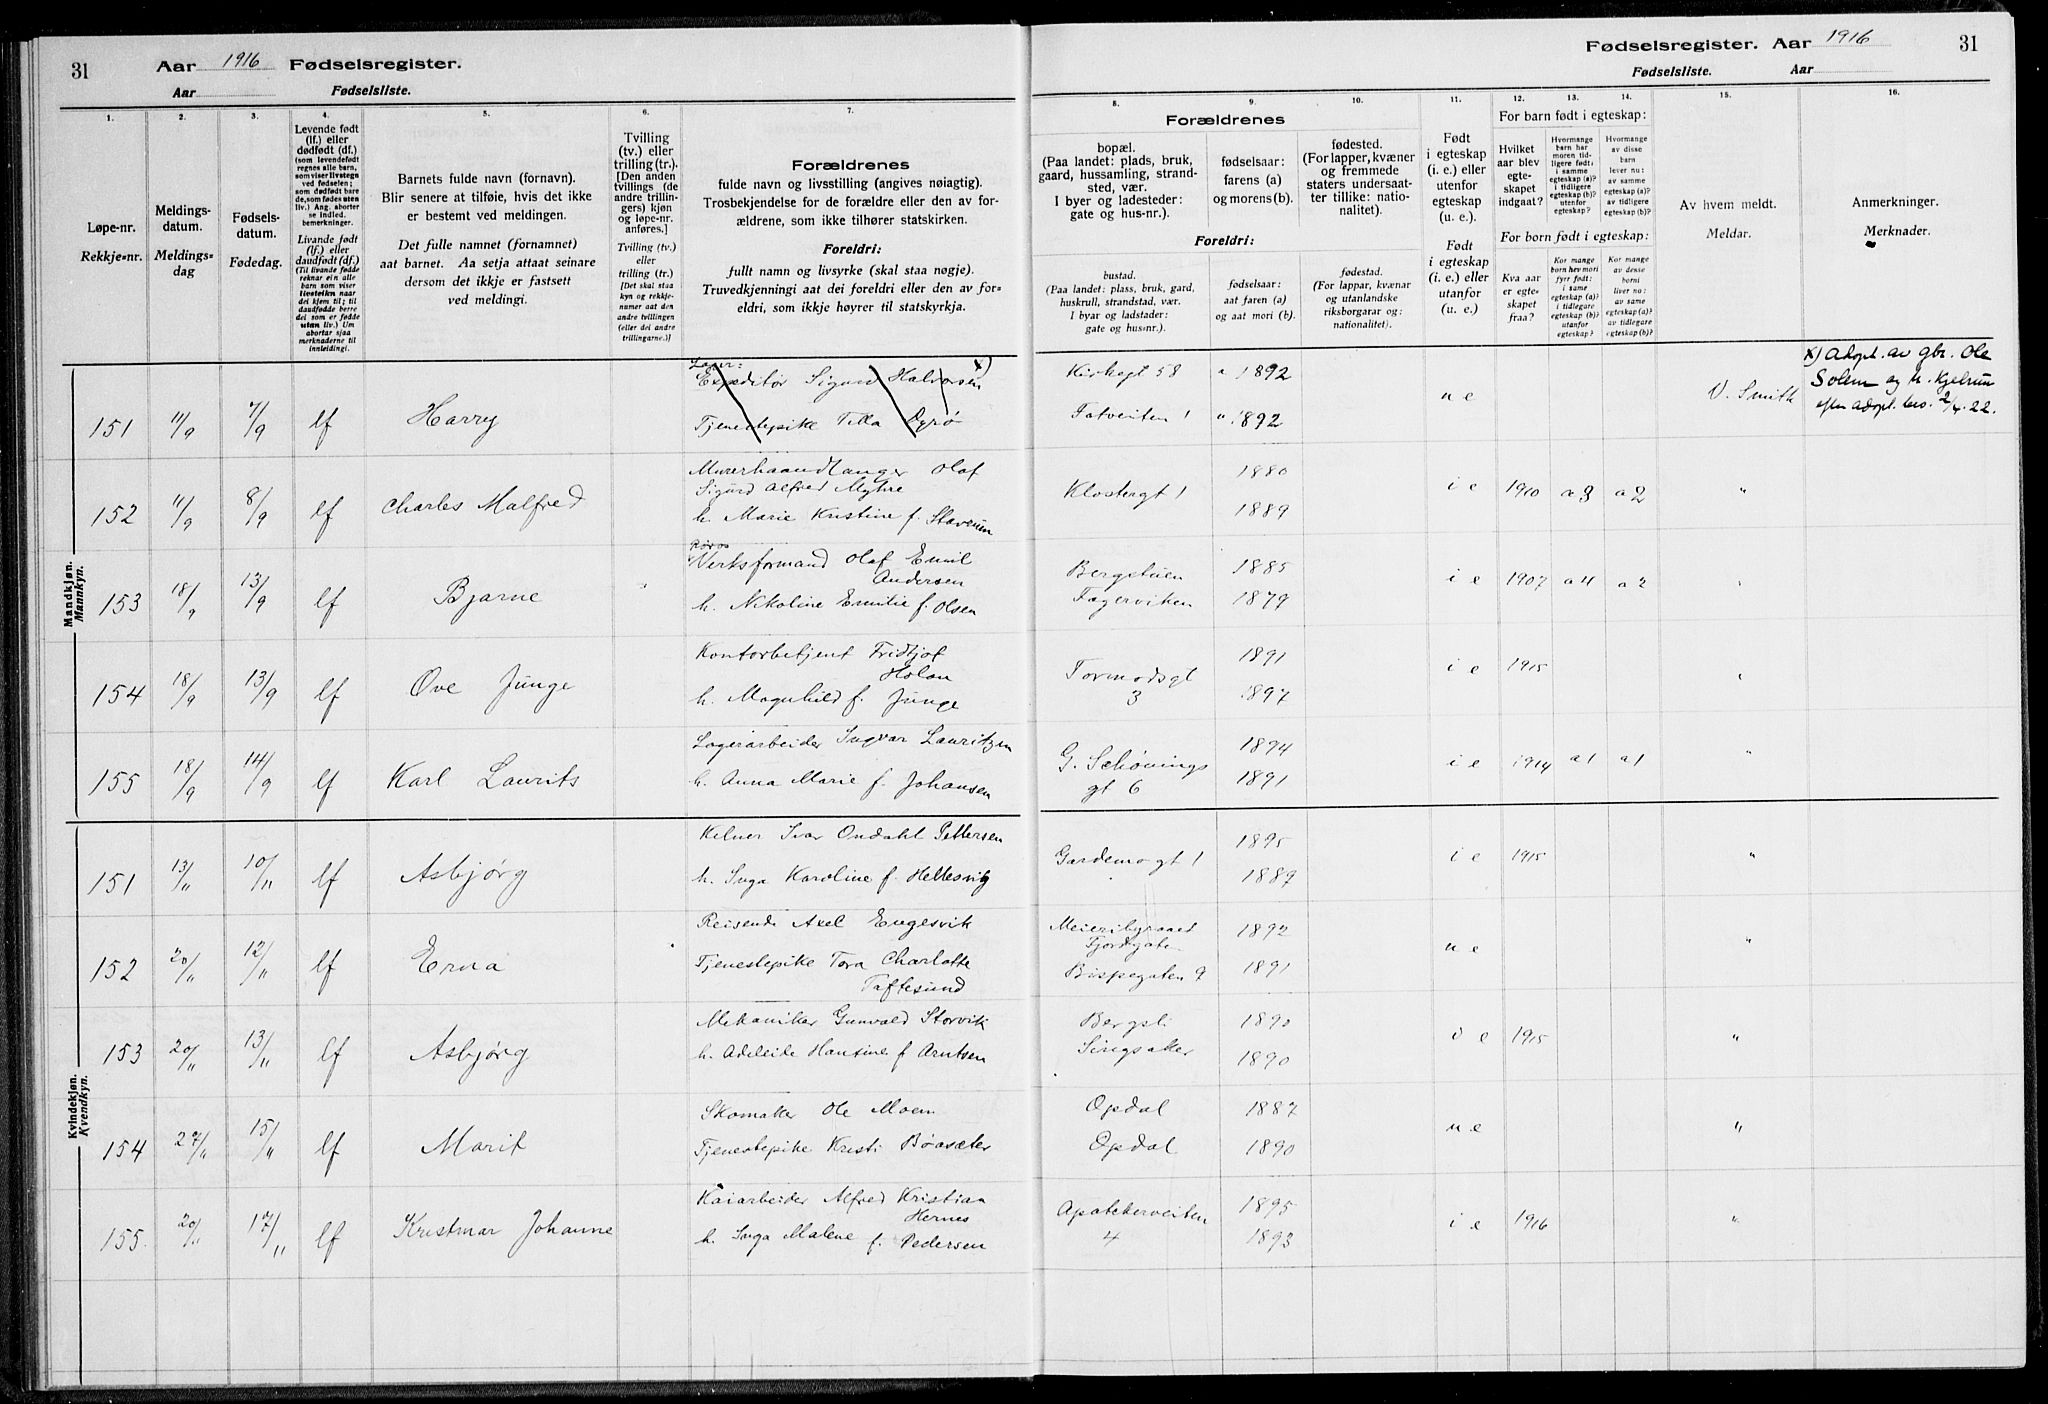 31
Aar 1916 Fødselsregister.
Aar Fødselsliste.
Fødselsregister. Aar 1916
31
Fødselsliste. Aar
1. 2. 3. 4. 5. 6. 7.
Løpe-nr.
Rekkje=nr.
Meldings-
datum.
Meldings=
dag
Fødsels-
datum.
Fødedag.
Levende født
(lf.) eller
dødfødt (df.)
(som levendefødt
regnes alle barn,
som viser livstegn
ved fødselen;
som dødfødt bare
de, som fødes uten
liv.) Ang. aborter
se indled.
bemerkninger.
Livande født
(lf.) eller
daudfødt (df.)
(Til livande fødde
reknar ein alle
barn som viser
livsteikn naar
dei kjem til; til
daudfødde berre
dei som er fødde
utan liv.) Um
abortar sjaa
merknaderne til
innleidingi.
Barnets fulde navn (fornavn).
Blir senere at tilføie, hvis det ikke
er bestemt ved meldingen.
Det fulle namnet (fornamnet)
aat barnet. Aa setja attaat seinare
dersom det ikkje er fastsett
ved meldingi.
Tvilling
(tv.) eller
trilling (tr.).
[Den anden
tvillings (de
andre trillin-
gers) kjøn
og løpe-nr.
anføres.]
Tvilling (tv.)
eller
trilling (tr.)
[Det skal staa
kyn og rekkje-
numer aat den
andre tvillingen
(eller dei andre
trillingarne.)]
Forældrenes
fulde navn og livsstilling (angives nøiagtig).
Trosbekjendelse for de forældre eller den av for-
ældrene, som ikke tilhører statskirken.
Foreldri:
fullt namn og livsyrke (skal staa nøgje).
Truvedkjenningi aat dei foreldri eller den av for=
eldri, som ikkje høyrer til statskyrkja.
8. 9. 10. 11. 12. 13. 14. 15. 16.
Forældrenes
bopæl.
(Paa landet: plads, bruk,
gaard, hussamling, strand-
sted, vær.
I byer og ladesteder:
gate og hus-nr.).
fødselsaar:
farens (a)
og morens (b).
fødested.
(For lapper, kvæner
og fremmede
staters undersaat-
ter tillike: natio-
nalitet).
Foreldri:
bustad.
(Paa landet: plass, bruk, gard,
huskrull, strandstad, vær.
I byar og ladstader:
gate og hus=nr.).
fødselsaar:
aat faren (a)
og aat mori (b).
fødestad.
(For lappar, kvænar
og utanlandske
riksborgarar og:
nationalitet).
Født
i egteskap
(i. e.) eller
utenfor
egteskap
(u. e.).
Født
i egteskap
(i. e.) eller
utanfor
(u. e.)
For barn født i egteskap:
Hvilket
aar blev
egte-
skapet
indgaat?
Hvormange
barn har
moren tid-
ligere født:
i samme
egteskap (a)?
i tidligere
egteskap (b)?
utenfor
egteskap?
Hvormange
av disse
barn
lever nu:
av samme
egteskap (a)?
av tidligere
egteskap (b)?
For born født i egteskap:
Kva aar
er egte-
skapet
fraa?
Kor mange
born hev mori
fyrr født:
i same
egteskap (a)?
i tidlegare
egteskap (b)?
utanfor
egteskap?
Kor mange
av desse
borni
liver no:
av same
egteskap (a)?
av tidlegare
egteskap (b)?
Av hvem meldt.
Meldar.
Anmerkninger.
Merknader.
Mandkjøn.
Mannkyn.
151 11/9 7/9 lf Harry Expeditør Sigurd Halvorsen x) Kirkegt 58 1892
Tjenestepike Tilla Dyrø Tatveiten 1 1892 u e V. Smith
x) Adopt. av gbr. Ole
Solem og h. Kjelrun
efter adopt. bev. 2/4.22.
152 11/9 8/9 lf Charles Malfred Murerhaandlanger Olaf
Sigurd Alfred Myhre
h. Marie Kristine f. Stavrum Klostergt 1 1880 1889 i e 1910 a 3 a 2 "
153 18/9 13/9 lf Bjarne Røros
Verksformand Olaf Emil
Andersen
h. Nikoline Emilie f. Olsen Bergstuen
Fagerviken 1885 1879 i e 1907 a 4 a 2 "
154 18/9 13/9 lf Ove Junge Kontorbetjent Fridtjof
Holan
h. Magnhild f. Junge Tormodsgt
3 1891 1897 i e 1915 "
155 18/9 14/9 lf Karl Laurits Lagerarbeider Ingvar Lauritzen
h. Anna Marie f. Johansen G. Schønings
gt 6 1894 1891 i e 1914 a 1 a 1 "
Kvindekjøn.
Kvendkyn.
151 13/11 10/11 lf Asbjørg Kelner Ivar Ondahl Pettersen
h. Inga Karoline f. Hellesvig Gardemogt 1 1895 1889 i e 1915 "
152 20/11 12/11 lf Erna Reisende Axel Engesvik
Tjenestepike Tora Charlotte
Taftesund Meieribyraaet
Fjordgaten
Bispegaten 9 1892 1891 u e "
153 20/11 13/11 lf Asbjørg Mekaniker Gunvald Storvik
h. Adeleide Hansine f Arntsen Bergsli
Singsaker 1890 1890 i e 1915 "
154 27/11 15/11 lf Marit Skomaker Ole Moen
Tjenestepike Kristi Bøasæter Opdal
Opdal 1887 1890 u e "
155. 20/11 17/11 lf Kristmar Johanne Kaiarbeider Alfred Kristian
Hernes
h. Inga Malene f. Pedersen Apotekerveiten
4 1895 1893 i e 1916 "